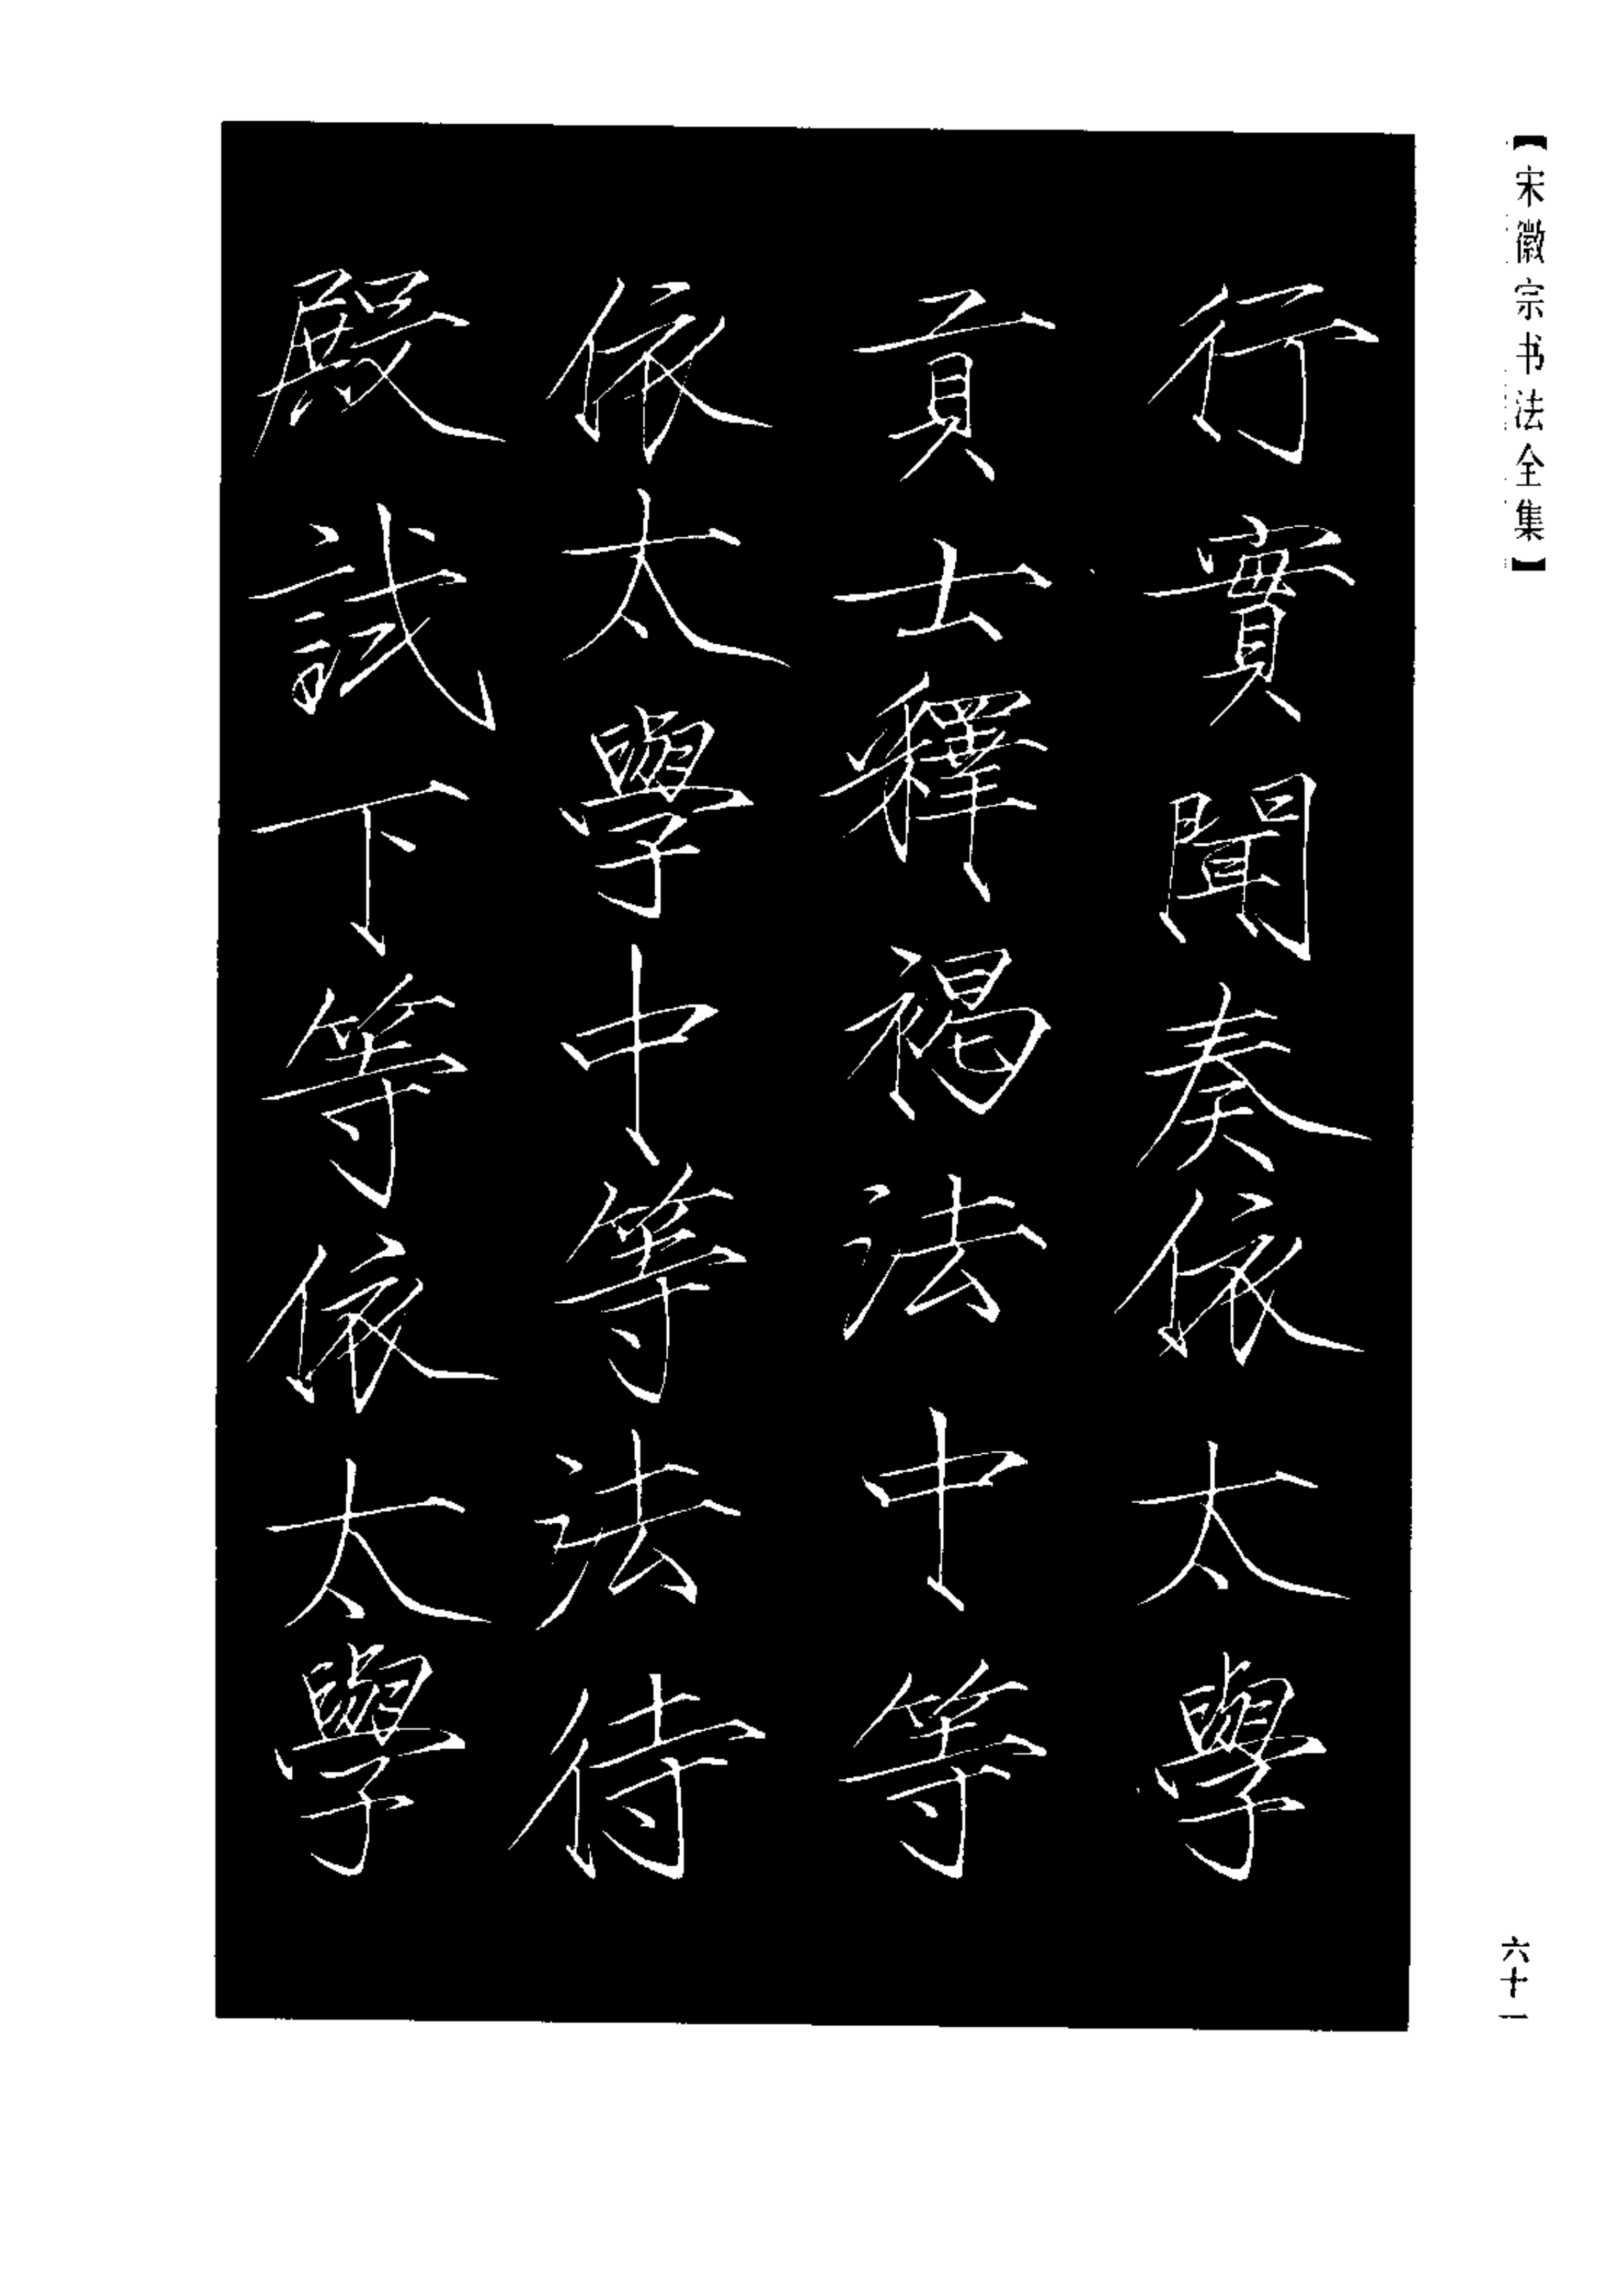 【宋徽宗书法全集】
行實聞奏依太學
貢士釋褐法中等
依太學中等法待
殿試下等依太學
六十一